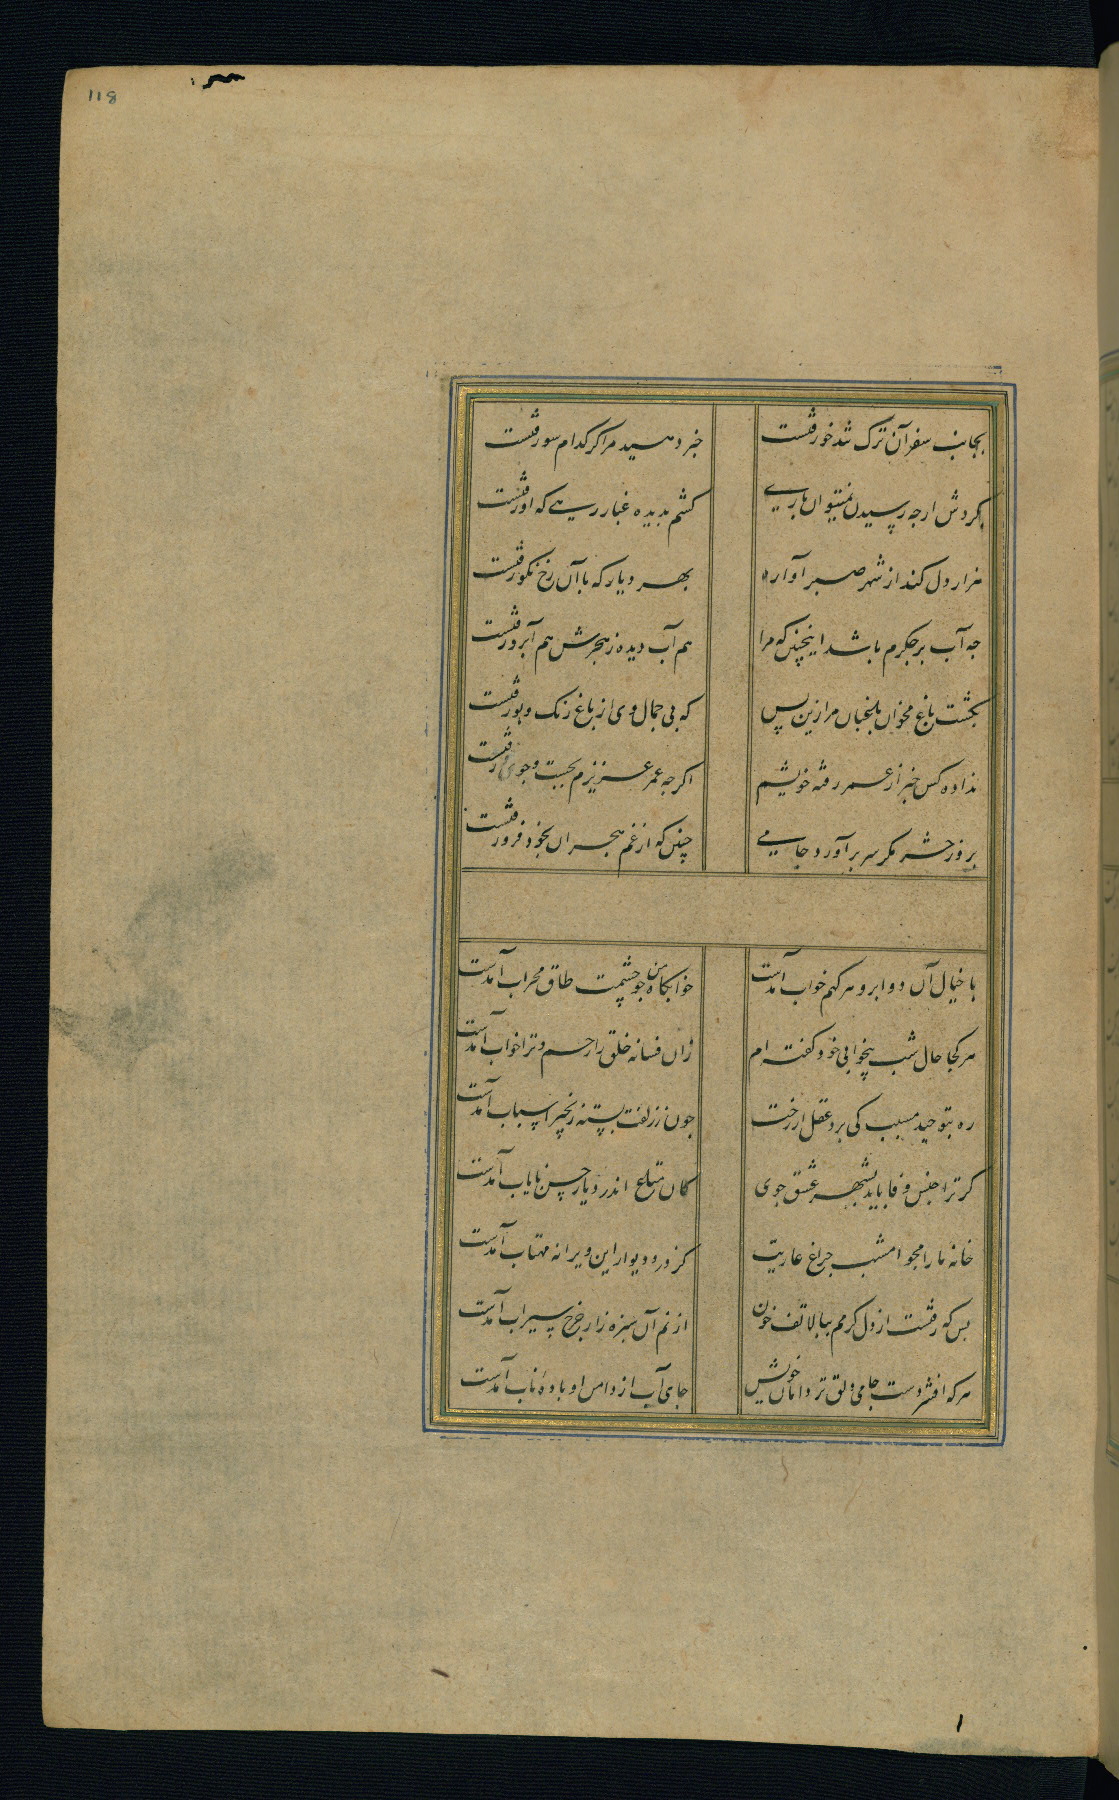 118
بجانب سفر آن ترک تند خو رفتست
خبر دهید مرا کز کدام سو رفتست
بگردش ارچه رسیدن نمیتوان باری
کشم بدیده غبار رهی که او رفتست
هزار دل کند از شهر صبر آواره
بهر دیار که با آن رخ نکو رفتست
چه آب بر جگرم باشد اینچنین که مرا
هم آب دیده ز هجرش هم آبرو رفتست
بگشت باغ مخوان باغبان مرا زین پس
که بی جمال وی از باغ رنک و بو رفتست
نداده کس خبر از عمر رفته خویشم
اگرچه عمر عزیزم بجست و جوی رفتست
بروز حشر مگر سر برآورد جامی
چنین که از غم هجران بخود فرو رفتست
با خیال آن دو ابرو هر کهم خواب آمدست
خوابگاه من چو چشمت طاق محراب آمدست
هر کجا حال شب بیخوابی خود گفته ام
زان فسانه خلق را رحم و ترا خواب آمدست
ره بتوحید مسبب کی برد عقل از رخت
چون ز زلفت بسته زنجیر اسباب آمدست
گر ترا جنس وفا باید بشهر عشق جوی
کان متاع اندر دیار حسن نایاب آمدست
خانه ما را مجو امشب چراغ عاریت
کز در و دیوار این ویرانه مهتاب آمدست
بس که رفتست از دل گرمم ببالا تف خون
از نم آن سبزه زار چرخ سیراب آمدست
هر که افشردست جامی دلق تر دامان خویش
جای آب از دامن او باده ناب آمدست